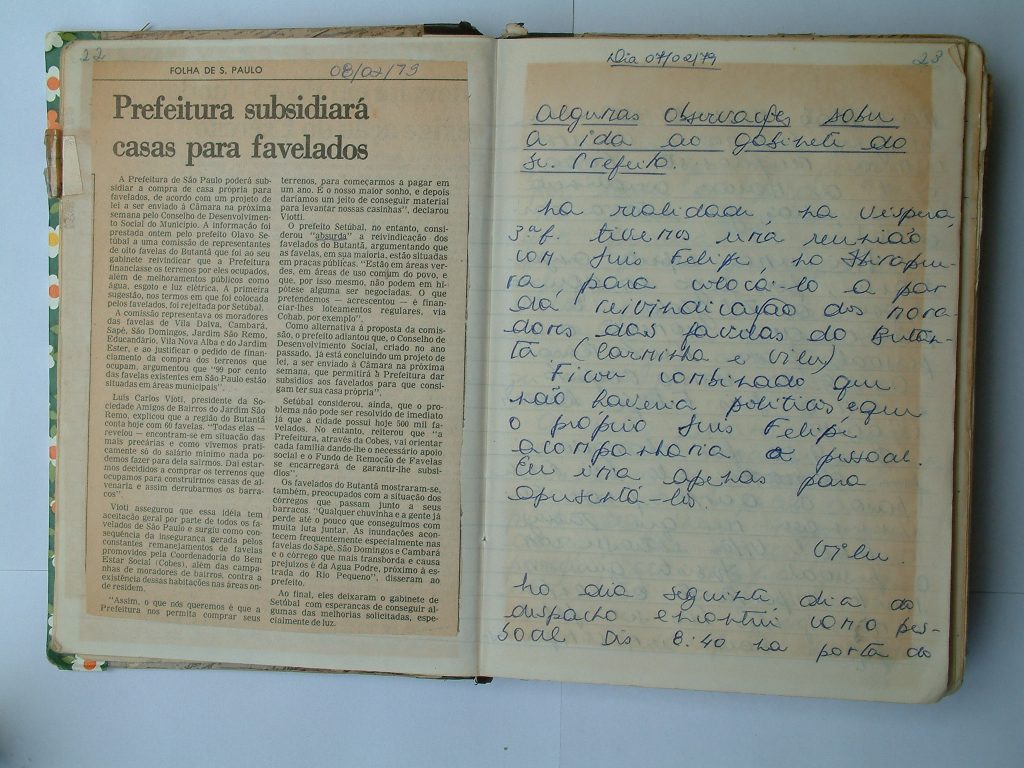 22
FOLHA DE S. PAULO
08/02/79
Prefeitura subsidiará
casas para favelados
A Prefeitura de São Paulo poderá sub-
sidiar a compra de casa própria para
favelados, de acordo com um projeto de
lei a ser enviado à Câmara na próxima
semana pelo Conselho de Desenvolvimen-
to Social do Município. A informação foi
prestada ontem pelo prefeito Olavo Se-
túbal a uma comissão de representantes
de oito favelas do Butantã que foi ao seu
gabinete reivindicar que a Prefeitura
financiasse os terrenos por eles ocupados,
além de melhoramentos públicos como
água, esgoto e luz elétrica. A primeira
sugestão, nos termos em que foi colocada
pelos favelados, foi rejeitada por Setúbal.
A comissão representava os moradores
das favelas de Vila Dalva, Cambará,
Sapé, São Domingos, Jardim São Remo,
Educandário, Vila Nova Alba e do Jardim
Ester, e ao justificar o pedido de finan-
ciamento da compra dos terrenos que
ocupam, argumentou que "99 por cento
das favelas existentes em São Paulo estão
situadas em áreas municipais".
Luís Carlos Vioti, presidente da So-
ciedade Amigos de Bairros do Jardim São
Remo, explicou que a região do Butantã
conta hoje com 60 favelas. "Todas elas —
revelou — encontram-se em situação das
mais precárias e como vivemos pratica-
mente só do salário mínimo nada pode-
mos fazer para dela sairmos. Daí estar-
mos decididos a comprar os terrenos que
ocupamos para construirmos casas de al-
venaria e assim derrubarmos os barra-
cos".
Vioti assegurou que essa idéia tem
aceitação geral por parte de todos os fa-
velados de São Paulo e surgiu como con-
sequência da insegurança gerada pelos
constantes remanejamentos de favelas
promovidos pela Coordenadoria do Bem
Estar Social (Cobes), além das campa-
nhas de moradores de bairros, contra a
existência dessas habitações nas áreas on-
de residem.
"Assim, o que nós queremos é que a
Prefeitura nos permita comprar seus
terrenos, para começarmos a pagar em
um ano. É o nosso maior sonho, e depois
daríamos um jeito de conseguir material
para levantar nossas casinhas", declarou
Viotti.
O prefeito Setúbal, no entanto, consi-
derou "absurda" a reivindicação dos
favelados do Butantã, argumentando que
as favelas, em sua maioria, estão situadas
em praças públicas. "Estão em áreas ver-
des, em áreas de uso comum do povo, e
que, por isso mesmo, não podem em hi-
pótese alguma ser negociadas. O que
pretendemos — acrescentou — é finan-
ciar-lhes loteamentos regulares, via
Cohab, por exemplo".
Como alternativa à proposta da comis-
são, o prefeito adiantou que, o Conselho de
Desenvolvimento Social, criado no ano
passado, já está concluindo um projeto de
lei, a ser enviado à Câmara na próxima
semana, que permitirá à Prefeitura dar
subsídios aos favelados para que consi-
gam ter sua casa própria".
Setúbal considerou, ainda, que o pro-
blema não pode ser resolvido de imediato
já que a cidade possui hoje 500 mil fa-
velados. No entanto, reiterou que "a
Prefeitura, através da Cobes, vai orientar
cada família dando-lhe o necessário apoio
social e o Fundo de Remoção de Favelas
se encarregará de garantir-lhe subsí-
dios".
Os favelados do Butantã mostraram-se,
também, preocupados com a situação dos
córregos que passam junto a seus
barracos. "Qualquer chuvinha e a gente já
perde até o pouco que conseguimos com
muita luta juntar. As inundações acon-
tecem frequentemente especialmente nas
favelas do Sapé, São Domingos e Cambará
e o córrego que mais transborda e causa
prejuízos é da Agua Podre, próximo à es-
trada do Rio Pequeno", disseram ao
prefeito.
Ao final, eles deixaram o gabinete de
Setúbal com esperanças de conseguir al-
gumas das melhorias solicitadas, espe-
cialmente de luz.
Dia 07/02/79
23
Algumas observações sobre
a ida ao gabinete do
Sr. Prefeito.
Na realidade, na véspera,
3ª f. tivemos uma reunião
com Luis Felipe, no Ibirapue-
ra para colocá-lo a par
da reivindicação dos mora-
dores das favelas do Butan-
tã (Carminha e Vilu)
Ficou combinado que
não haveria políticos e que
o próprio Luis Felipe
acompanharia o pessoal.
Eu iria apenas para
apresentá-los.
Vilu
No dia seguinte, dia do
despacho encontrei com o pes-
soal às 8:40 na porta do